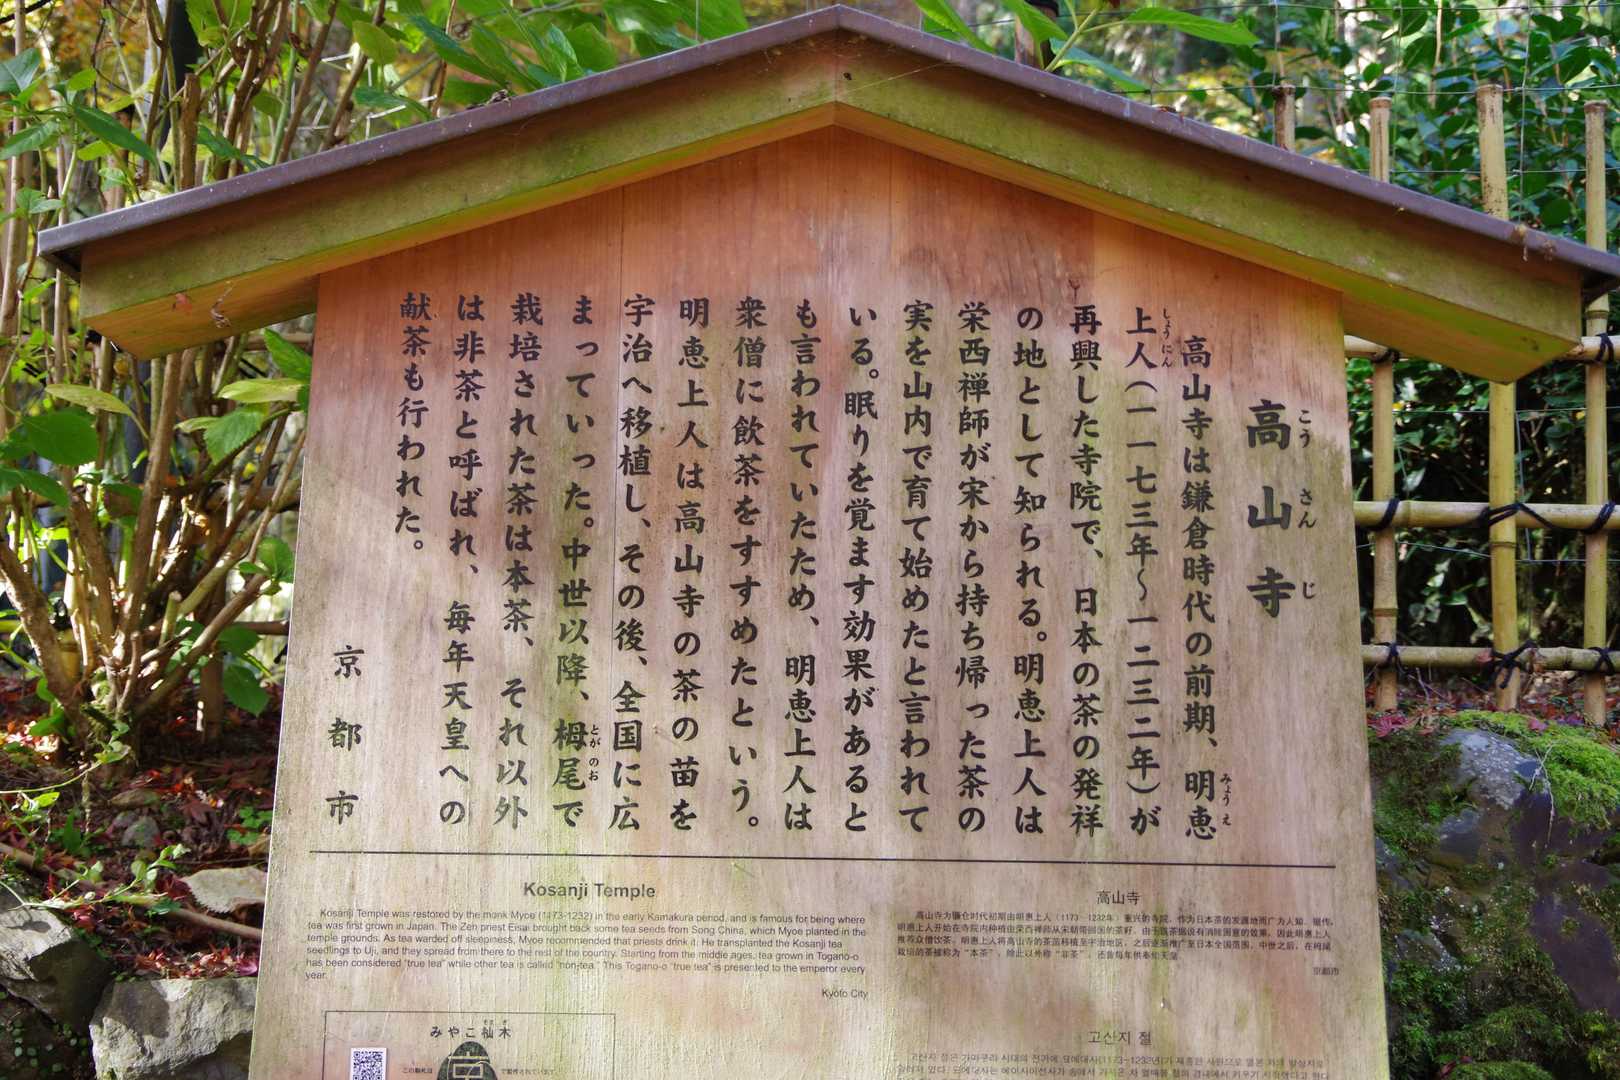 高山寺
こうさんじ
高山寺は鎌倉時代の前期、明恵
みょうえ
上人（一一七三年〜一二三二年）が
しょうにん
再興した寺院で、日本の茶の発祥
の地として知られる。明恵上人は
栄西禅師が宋から持ち帰った茶の
実を山内で育て始めたと言われて
いる。眠りを覚ます効果があると
も言われていたため、明恵上人は
衆僧に飲茶をすすめたという。
明恵上人は高山寺の茶の苗を
宇治へ移植し、その後、全国に広
まっていった。中世以降、栂尾で
とがのお
栽培された茶は本茶、それ以外
は非茶と呼ばれ、毎年天皇への
献茶も行われた。
京都市
Kosanji Temple
Kosanji Temple was restored by the monk Myoe (1173-1232) in the early Kamakura period, and is famous for being where
tea was first grown in Japan. The Zen priest Eisai brought back some tea seeds from Song China, which Myoe planted in the
temple grounds. As tea warded off sleepiness, Myoe recommended that priests drink it. He transplanted the Kosanji tea
seedlings to Uji, and they spread from there to the rest of the country. Starting from the middle ages, tea grown in Togano-o
has been considered "true tea" while other tea is called "non-tea." This Togano-o "true tea" is presented to the emperor every
year.
Kyoto City
高山寺
高山寺为镰仓时代初期由明惠上人（1173－1232年）重兴的寺院，作为日本茶的发源地而广为人知。据传，
明惠上人开始在寺院内种植由荣西禅师从宋朝带回国的茶籽。由于该茶据说有消除困意的效果，因此明惠上人
推荐众僧饮茶。明惠上人将高山寺的茶苗移植至宇治地区，之后逐渐推广至日本全国范围。中世之后，在栂尾
栽培的茶被称为“本茶”，除此以外称“非茶”，还曾每年供奉给天皇。
京都市
고산지 절
みやこ杣木